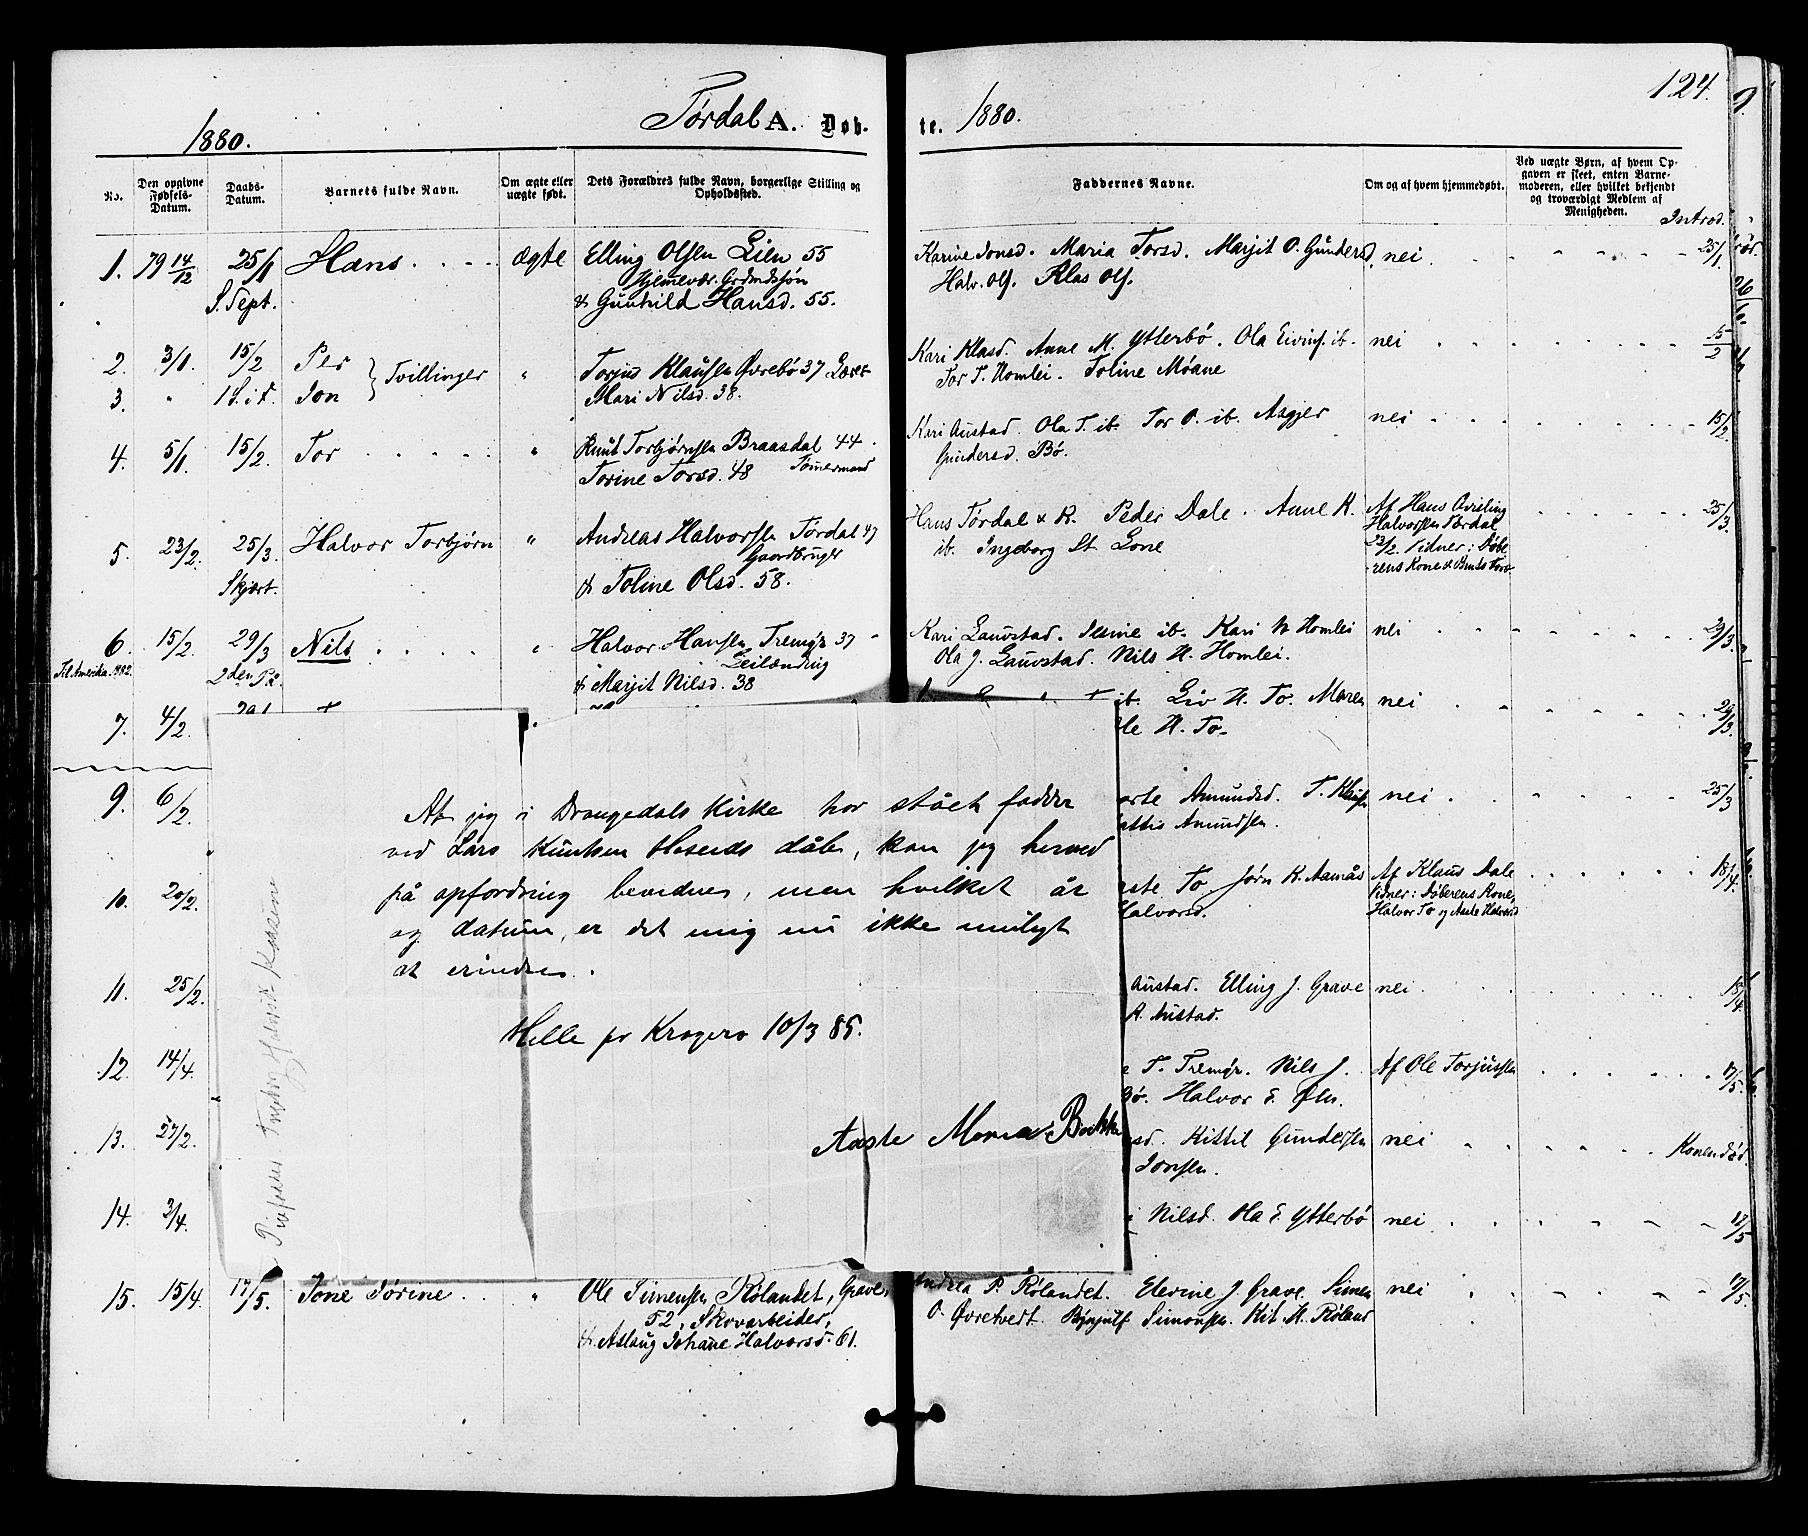 124.
Tørdal A. Døb- te. 1880.
1880.
No. Den opgivne Fødsels-Datum. Daabs-Datum. Barnets fulde Navn. Om ægte eller uægte født. Dets Forældres fulde Navn, borgerlige Stilling og Opholdssted. Faddernes Navne. Om og af hvem hjemmedøbt. Ved uægte Børn, af hvem Opgaven er skeet, enten Barnemoderen, eller hvilket bekjendt og troværdigt Medlem af Menigheden.
Introd.
1. 79 14/12 25/1 Hans ægte Elling Olsen Lien 55 Karine Jonsd. Maria Torsd. Marjit O. Gundersd. nei 25/1
S. Sept. & Gunhild Hansd. 55. Halv. Ols. Klas Ols.
2. 3/1 15/2 Per } Tvillinger " Torjus Klausen Øvrebø 37 Kari Klasd. Anne M. Ytterbø. Ola Eivins. ib. nei 15/2
3. " 1 S. i F. Jon Mari Nilsd. 38. Tor T. Homlei. Toline Moane
4. 5/1 15/2. Tor " Knut Torbjørnsen Braasdal 44 Kari Austad Ola T. ib. Tor O. ib. Asgjer nei 15/2
Torine Torsd. 48 Tømermand Gundersd. Bø.
5. 23/2. 25/3. Halvor Torbjørn " Andreas Halvorsen Tørdal 47 Hans Tørdal & K. Peder Dale. Anne K. Af Hans Qvisling 25/3.
Skjært. Gaardbruger ib. Ingeborg St. Lone Halvorsen Tørdal
& Toline Olsd. 58. 23/2. Vidner: Døbe-
rens Kone &
6. 15/2. 29/3 Nils " Halvor Hansen Tremyr 37 Kari Lauvstad. ib. Kari N Homlei nei 29/3
Til Amerika 1882. 2den På. Leilænding Ola J. Lauvstad. Nils H. Homlei.
& Marjit Nilsd. 38
7. 4/2. ib. Liv H. To. Maren nei 29/3.
H. To.
9. 6/2. Amundsd. T. nei 25/3
Amundsen.
10. 20/2. To Jørn K. Aamås Af Klaus Dale 18/4.
Halvorsd. Vidner: Døberens Kone,
Halvor To og Aaste Halvorsd
11. 25/2. Austad. Elling J. Grave nei 18/4
A. Austad.
12. 14/4. T. Tremyr. Nils J. Af Ole Torjussen 17/5.
Halvor E.
13. 27/2. Kittil Gundersen nei Konen død.
Jonsen.
14. 3/4. Nilsd. Ola E. Ytterbø nei 17/5
15. 15/4. 17/5. Tone Tørine " Ole Simensen Rølandet, Grave, Andrea P. Rølandet. Elevine J. Grave. Simen nei 17/5.
52, Skovarbeider, O. Øvretvedt. Simonsen. Kit. M. Røland
& Aslaug Johane Halvorsd. 61.
At jeg i Drangedals Kirke har stået fadder
ved Lars Knutsen Hoseids dåb, kan jeg herved
på opfordring bevidnes, men hvilket år
og datum, er det mig nu ikke muligt
at erindre.
Helle pr Kragerø 10/3 85.
Aaste Maria Bakka